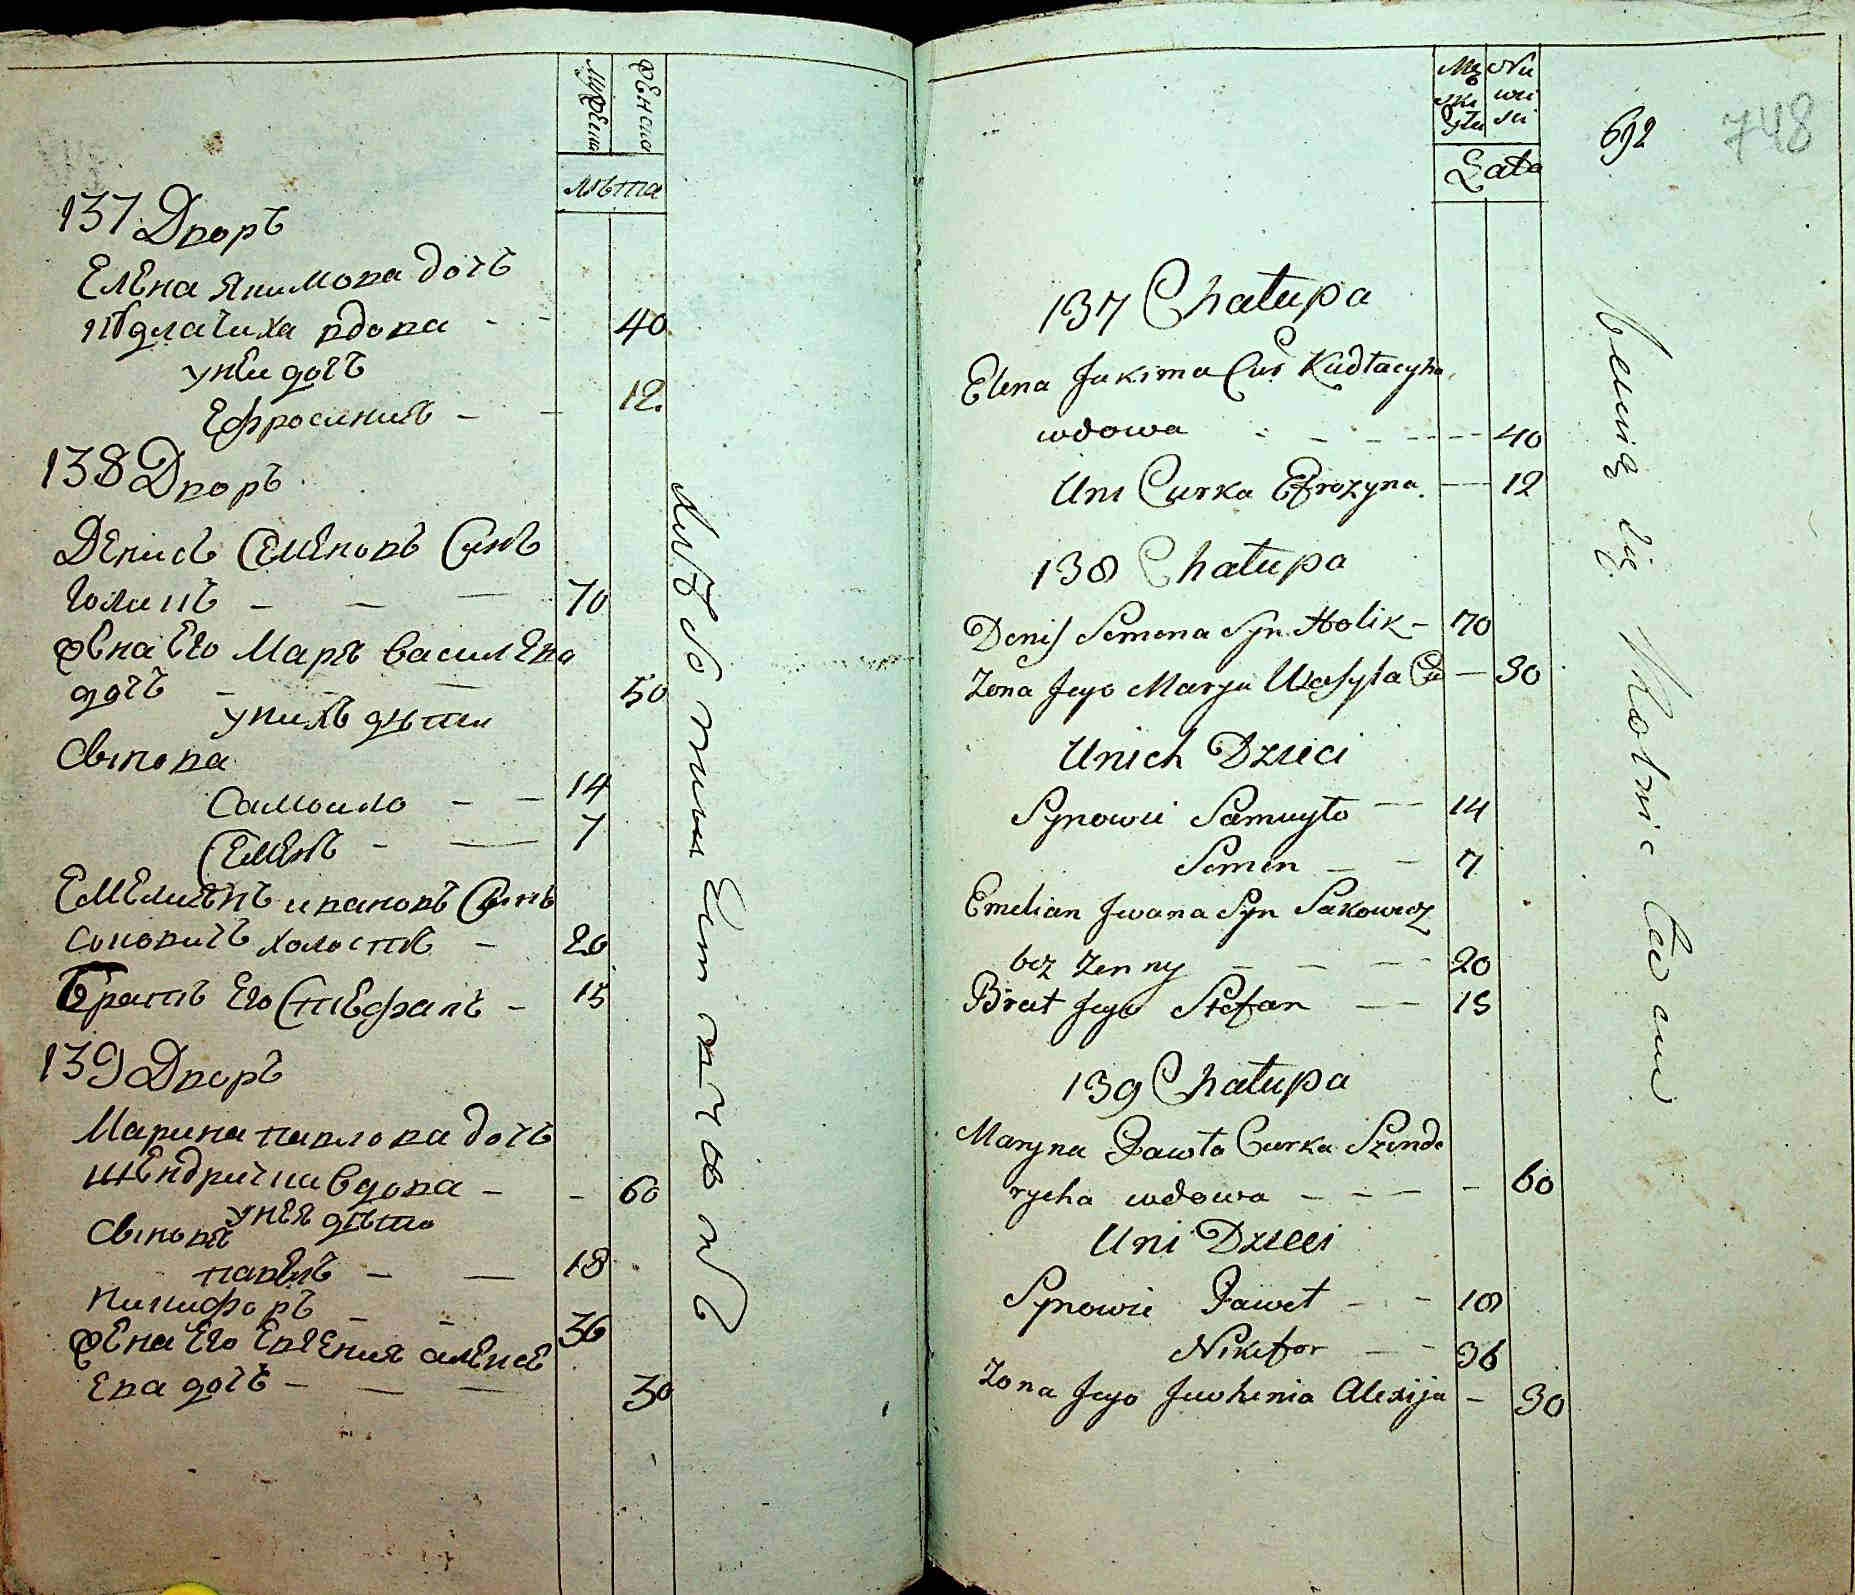 мужеска
женска
лѣта
137 Дворъ
Елена Якимова дочь
Кудлачиха вдова - - 40
у неи дочь
Ефросиния - - 12
138 Дворъ
Денисъ Семеновъ Сынъ
Голикъ - - - 70
Жена Его Маря василева
дочь - - - 50
у нихъ дѣти
Сынова
Самоило - - 14
Семенъ - - 7
Емелиянъ ивановъ Сынъ
холостъ - 20
Братъ Его Стефанъ - 15
139 Дворъ
Марина павлова дочь
вдова - - 60
у нея дѣти
Сыновя
павелъ - - 18
никифоръ - - 36
Жена Его Евгения алексе
ева дочь - - - 30
Męzkiey
Lata
692
748
137 Chałupa
Elena Jakima Cur Kudłacyha
wdowa - - - - - 40
Uni Curka Efrozyna. - 12
138 Chałupa
Denis Semena Syn Holik - 70
Zona Jego Marya Wasyla Cu - 30
Unich Dzieci
Synowie Samuyło - 14
Semen - - 7
Emelian Jwana Syn Sakowicz
bez zenny - - - - 20
Brat Jego Stefan - - 15
139 Chałupa
Maryna Pawła Curka Szende
rycha wdowa - - - - 60
Uni Dzieci
Synowie Paweł - - 18
Nikifor - - 36
Zona Jego Jewhenia Alexija - 30